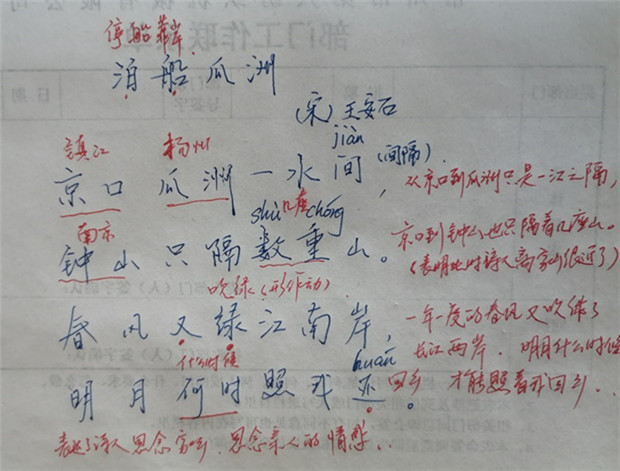 停船靠岸
泊船瓜洲
(宋)王安石
镇江 扬州 jiàn (间隔)
京口瓜洲一水间,
从京口到瓜洲只是一江之隔,
南京 shù 几座 chóng
钟山只隔数重山。
京口到钟山也只隔着几座山。
(表明此时诗人离家乡很近了)
吹绿(形作动)
春风又绿江南岸,
一年一度的春风又吹绿了
长江两岸.
什么时候 huán
明月何时照我还。
回乡
明月什么时候
才能照着我回乡...
表达了诗人思念家乡.思念亲人的情感...